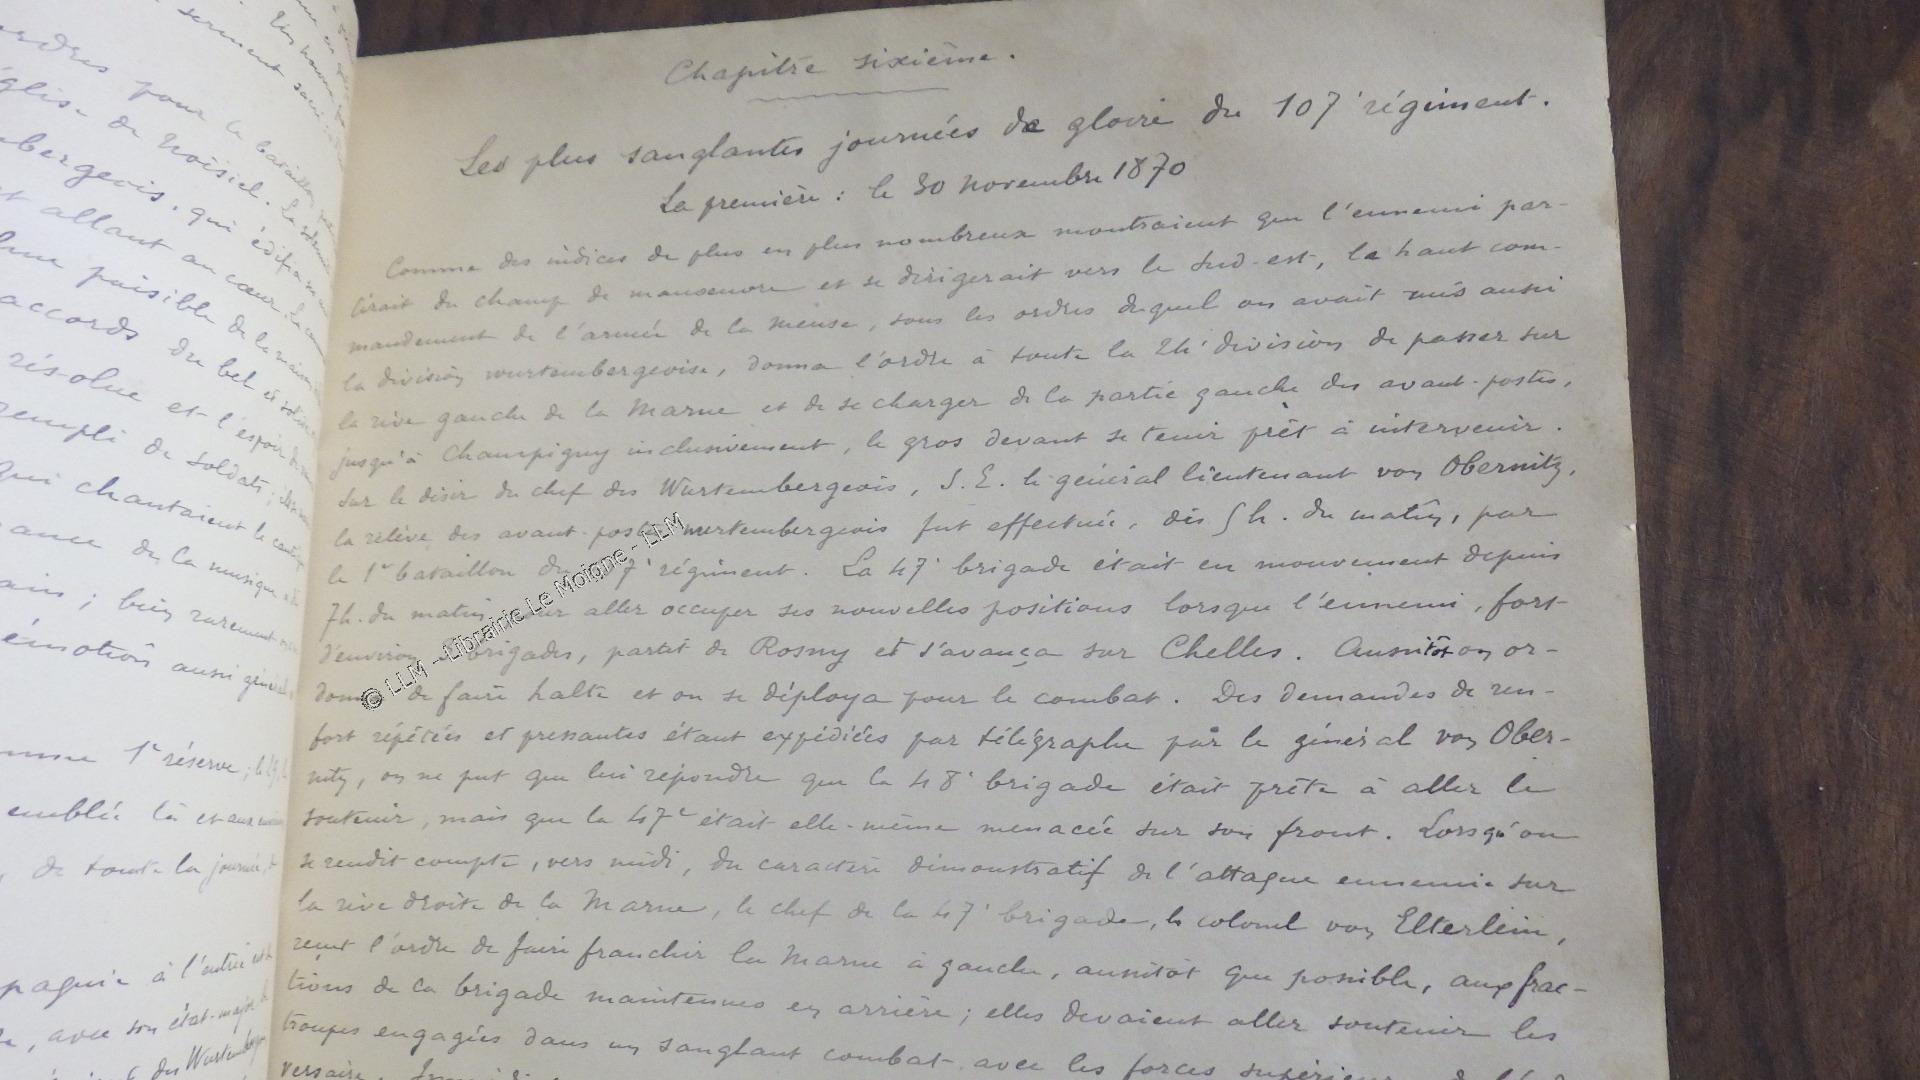 ordres pour le bataillon
église de Noisiel. La
qui édifia
et allant au cœur. Le
paisible de la
accords du bel et
résolue et l'espoir
rempli de soldats ;
qui chantaient le
de la musique
; bien rarement
émotion aussi
1e réserve ;
là et aux
, de toute la journée,
à l'entrée
, avec son état-major
des
Chapitre sixième.
Les plus sanglantes journées de gloire du 107e régiment.
La première : le 30 novembre 1870
Comme des indices de plus en plus nombreux montraient que l'ennemi par-
tirait du champ de manœuvre et se dirigerait vers le sud-est, le haut com-
mandement de l'armée de la Meuse, sous les ordres duquel on avait mis aussi
la division wurtembergeoise, donna l'ordre à toute la 24e division de passer sur
la rive gauche de la Marne et de se charger de la partie gauche des avant-postes,
jusqu'à Champigny inclusivement, le gros devant se tenir prêt à intervenir.
Sur le désir du chef des Wurtembergeois, S. E. le général lieutenant von Obernitz,
la relève des avant-postes wurtembergeois fut effectuée, dès 5 h. du matin, par
le 1er bataillon du 7e régiment. La 47e brigade était en mouvement depuis
7h. du matin pour aller occuper ses nouvelles positions lorsque l'ennemi, fort
d'environ brigades, partit de Rosny et s'avança sur Chelles. Aussitôt on or-
donna de faire halte et on se déploya pour le combat. Des demandes de ren-
fort répétées et pressantes étant expédiées par télégraphe par le général von Ober-
nitz, on ne put que lui répondre que la 48e brigade était prête à aller le
soutenir, mais que la 47e était elle-même menacée sur son front. Lorsqu'on
se rendit compte, vers midi, du caractère démonstratif de l'attaque ennemie sur
la rive droite de la Marne, le chef de la 47e brigade, le colonel von Elterlein,
reçut l'ordre de faire franchir la Marne à gauche, aussitôt que possible, aux frac-
tions de sa brigade maintenues en arrière ; elles devaient aller soutenir les
troupes engagées dans un sanglant combat avec les forces supérieures de
versaire.
© LLM - Librairie Le Moigne - LLM